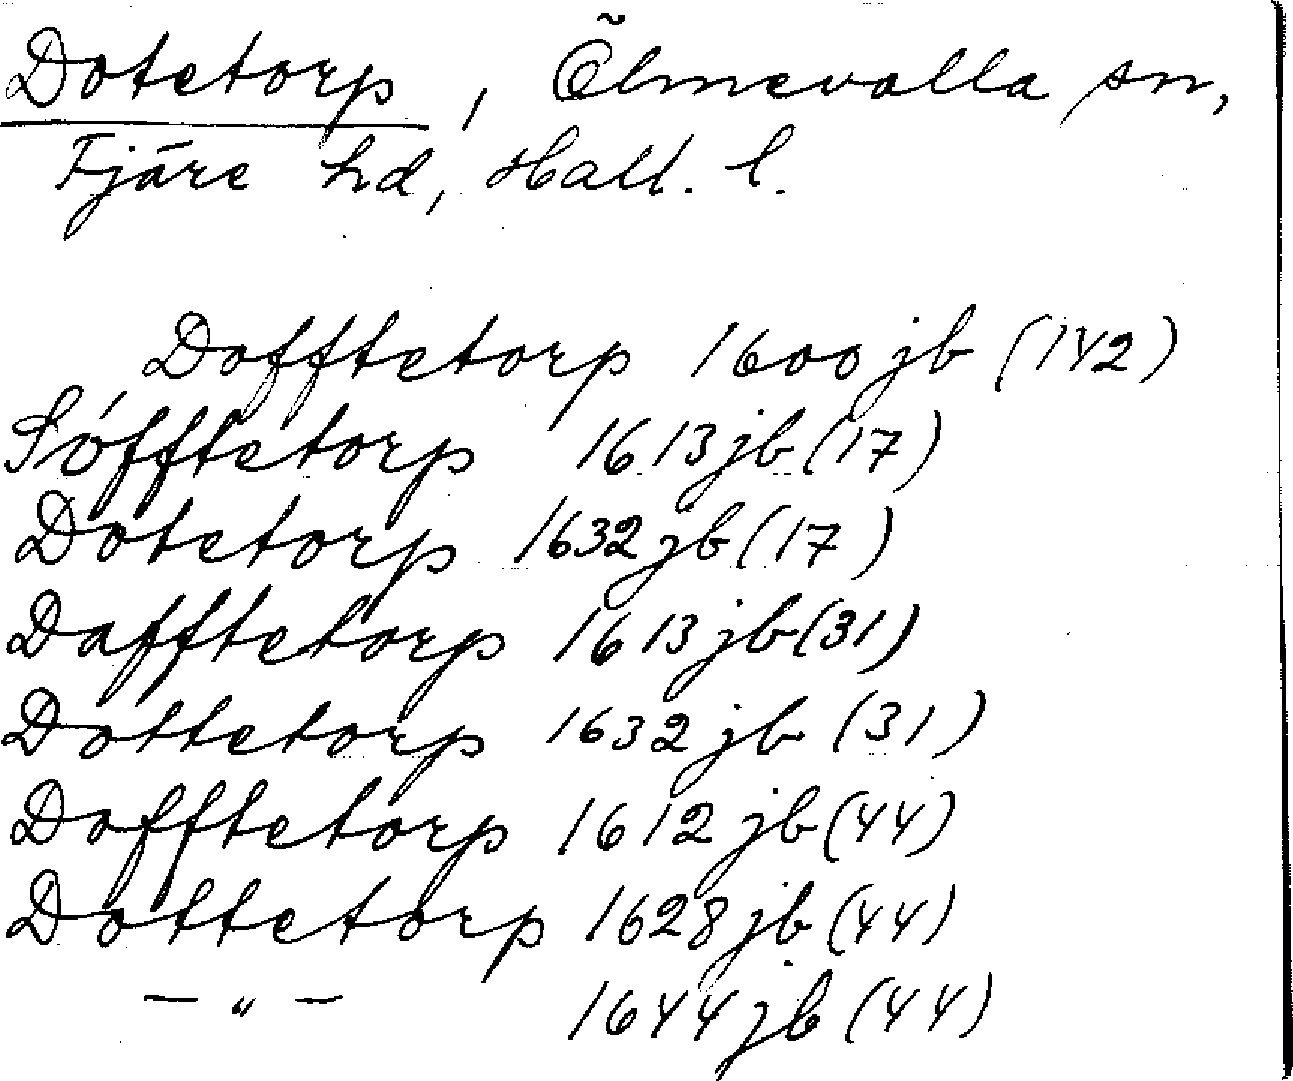 Dotetorp, Ölmevalla sn,
Fjäre hd, Hall. l.
Dofftetorp 1600 jb (142)
Sófftetorp 1613 jb (17)
Dotetorp 1632 jb (17)
Dafftetorp 1613 jb (31)
Dottetorp 1632 jb (31)
Dofftetorp 1612 jb (44)
Dottetorp 1628 jb (44)
— " — 1644 jb (44)